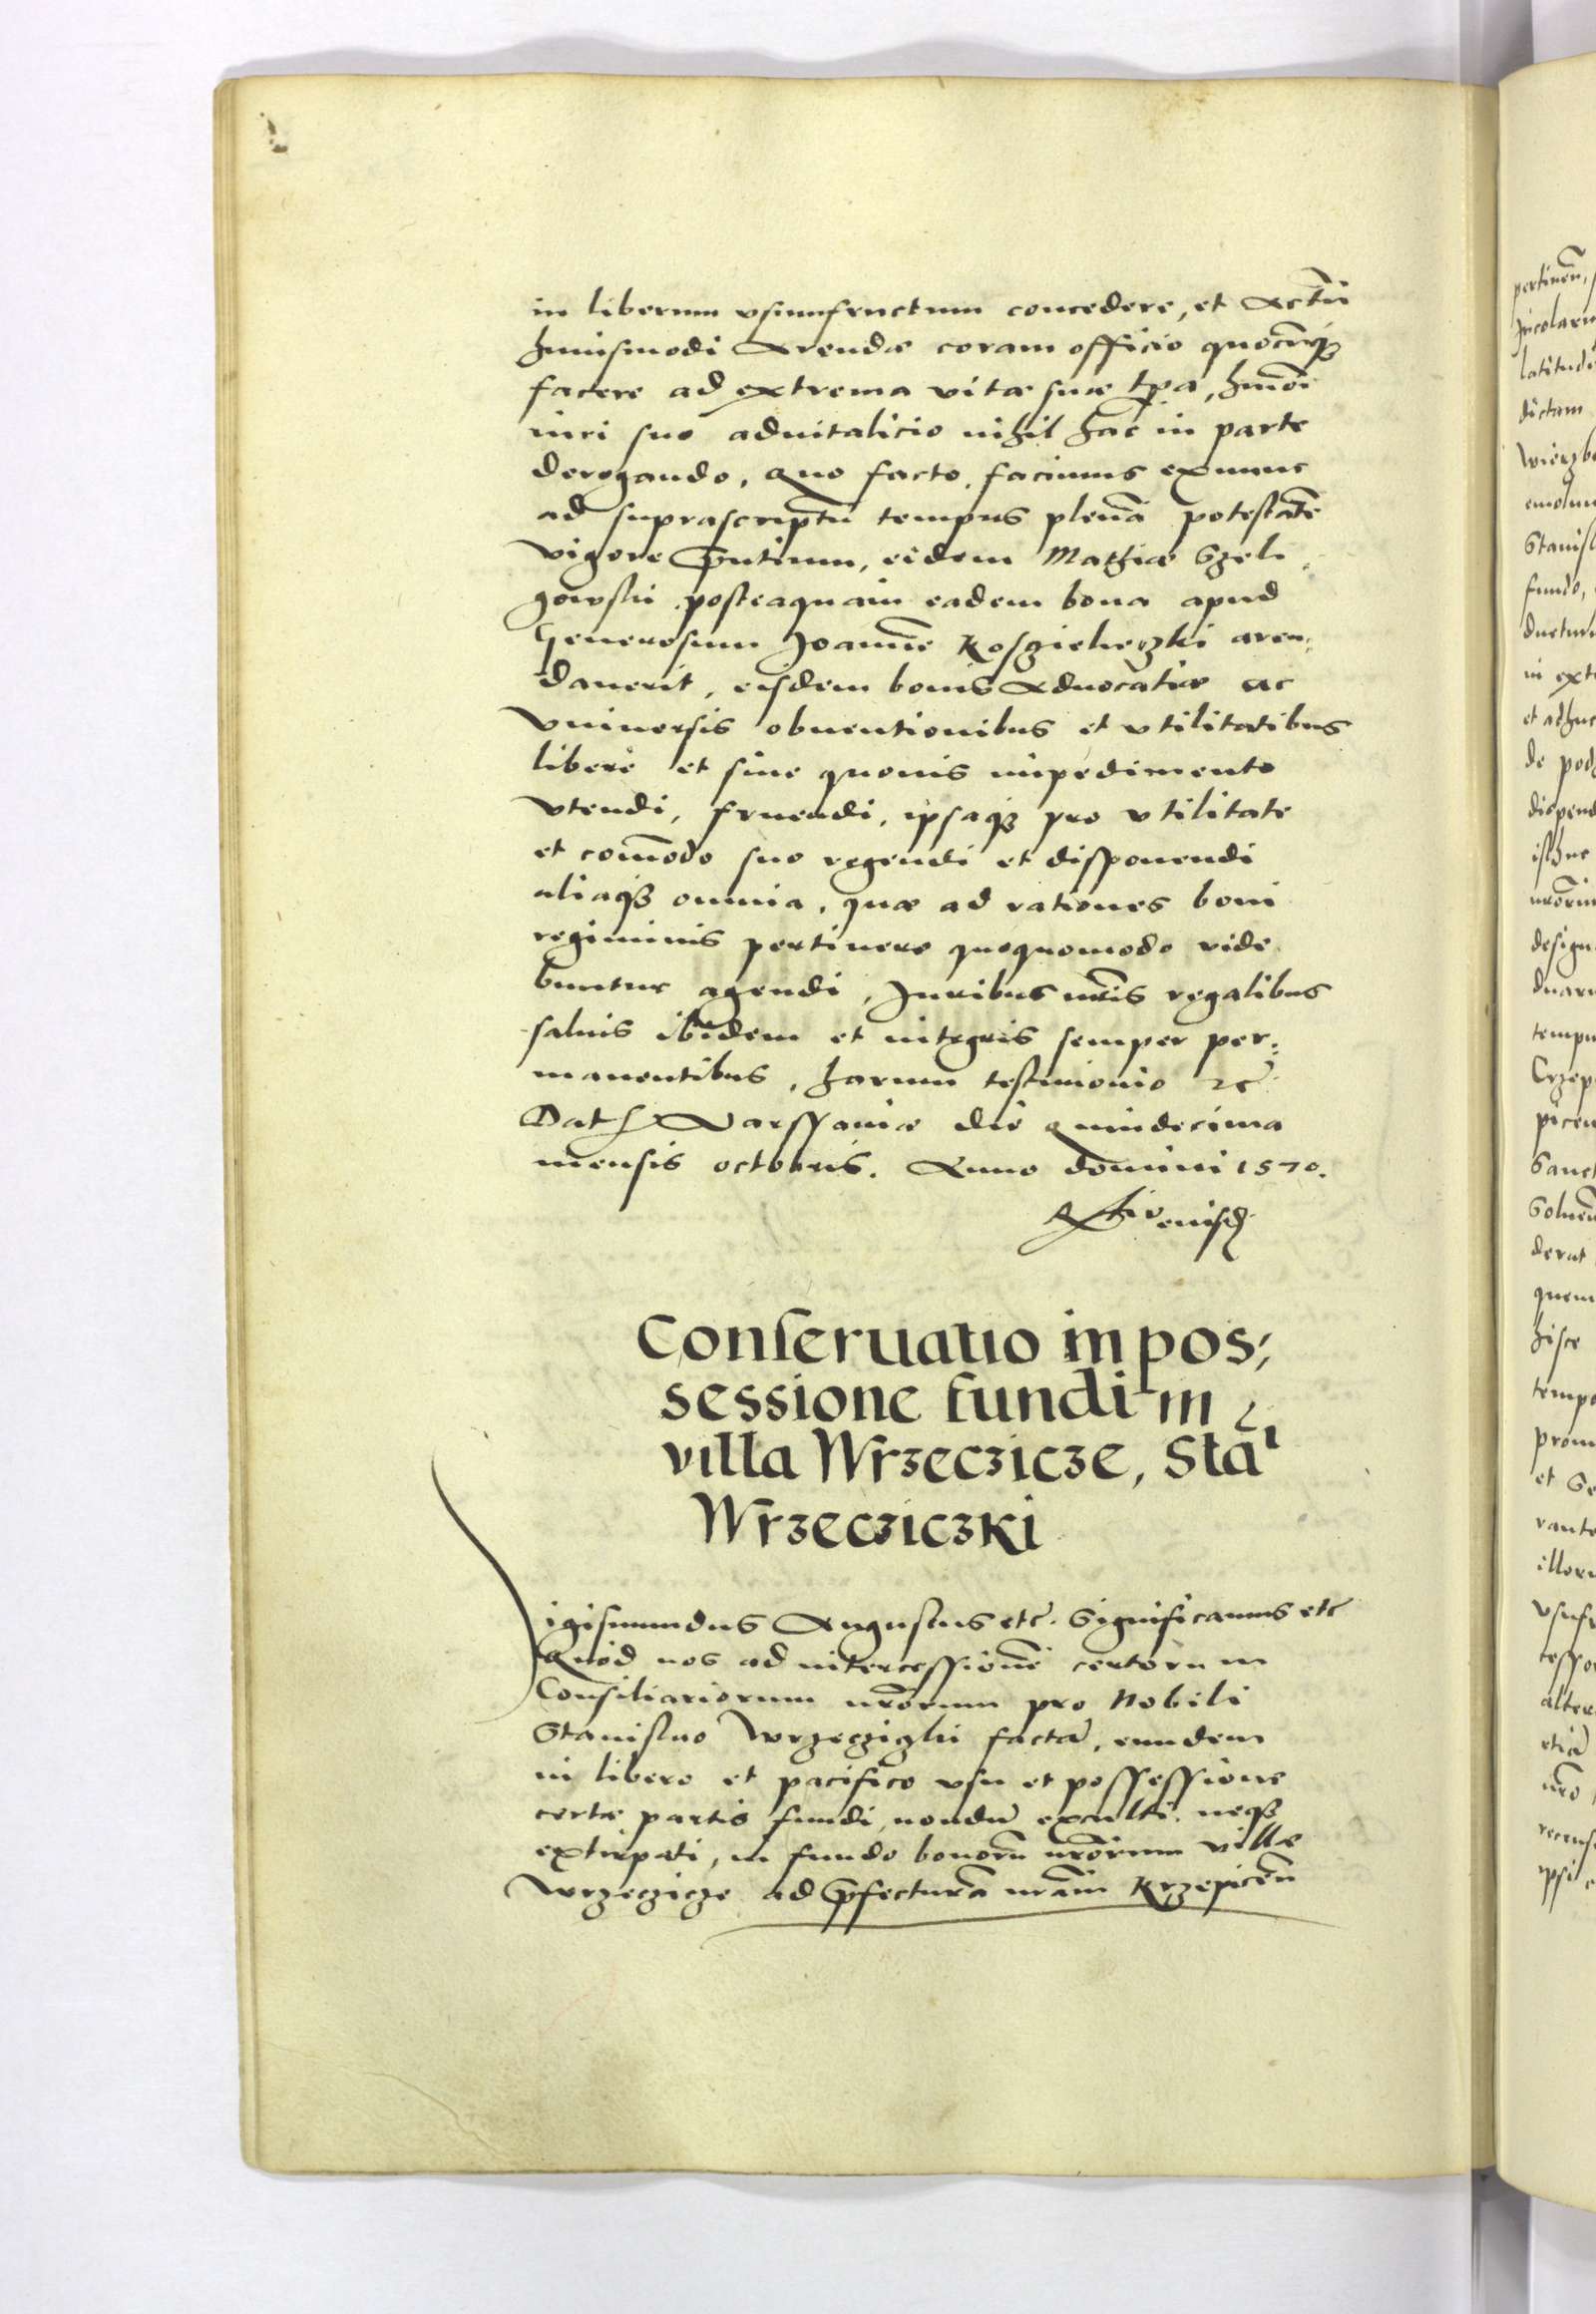 in liberum vsumfructum concedere, et Actū
huiusmodi Arendæ coram officio quocūqꝫ
facere ad extrema vitæ suæ tp̄a, hmōi
iuri suo aduitalicio nihil hac in parte
derogando. Quo facto, facimus exnunc
ad suprascriptū tempus plenā potestatē
vigore p̄ntium, eidem Mathiæ Szeli
gowski posteaquam eadem bona apud
Generosum Joannē Kosziele​czki aren,
dauerit, eisdem bonis Aduocatiæ ac
vniuersis obuentionibus et vtilitatibus
libere et sine quouis impedimento
vtendi, fruendi, ipsaqꝫ pro vtilitate
et com̄odo suo regendi et disponendi
aliaqꝫ omnia, quæ ad rationes boni
regiminis pertinere quoquomodo vide
buntur agendi, Juribus nrīs regalibus
saluis ibidem et integris semper per:
manentibus, harum testimonio ꝛc̄
Dat Varssauiæ die quindecima
mensis octobris. Anno domini 1570.
Conseruatio in pos;
sessione fundi in
villa Wrzecźicze, Sta͂ı
Wrzecziczki
igismundus Augustus etc̄. Significamus etc̄
Quod nos ad intercessionē certorum
Consiliariorum nrōrum pro Nobili
Stanislao Wrzecziczki factā, eundem
in libero et pacifico vsu et possessione
certæ partis fundi, nondū exculti, neqꝫ
extirpati, in fundo bonorū nrōrum villæ
Wrzeczicze ad p̄fecturā nrām Krzepicēn
pertinen̄,
latitudi
dictam
Stanisl
fundo,
in ext
et adhuc
design
tempu
Crzep
picen
derat
quem
tempo
prom
et Se